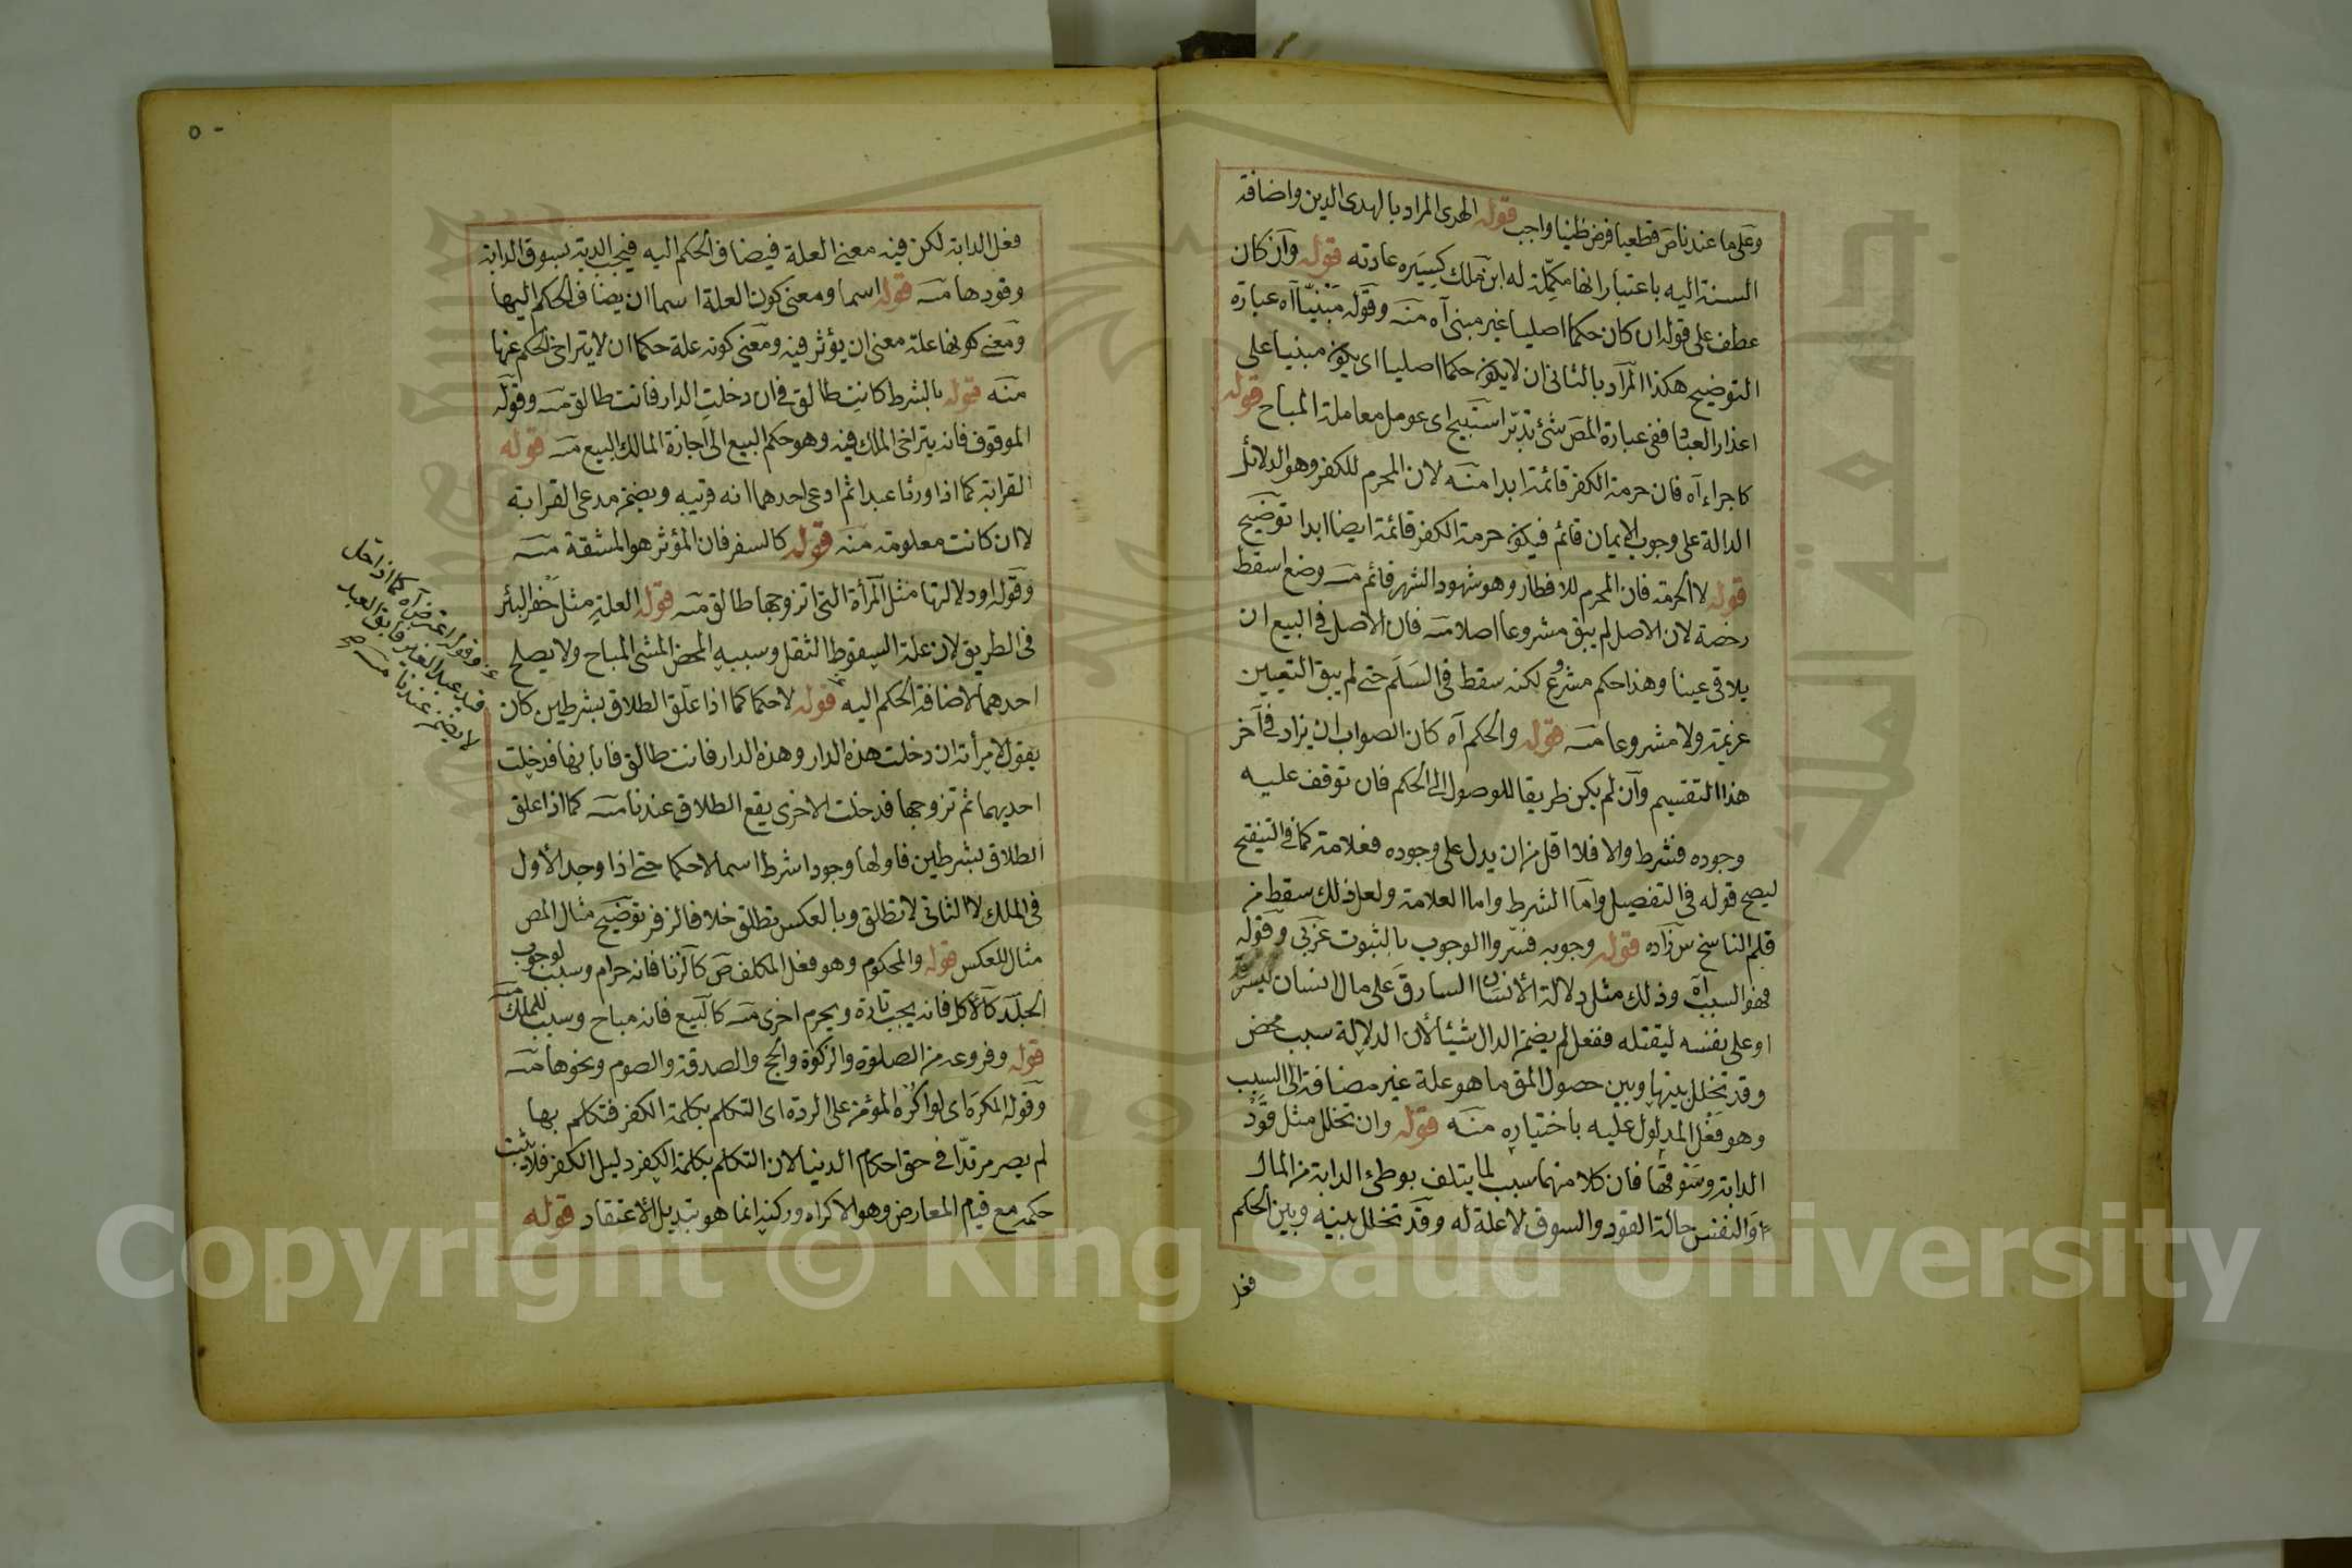 وعلى ما عندنا ص قطعيا فرض ظنيا واجب قوله الهدى المراد بالهدى الدين واضافة
السنة اليه باعتبار انها مكملة له ابن ملك كسيره عادته قوله وان كان
عطف على قوله ان كان حكما اصليا غير مبنى آه منه وقوله مبنيا آه عبارة
التوضيح هكذا المراد بالثانى ان لا يكون حكما اصليا اى يكون مبنيا على
اعذار العباد ففى عبارة المص شئ تدبر استبيح اى عومل معاملة المباح قوله
كاجراء آه فان حرمة الكفر قائمة ابدا منه لان المحرم للكفر وهو الدلائل
الدالة على وجوب الايمان قائم فيكون حرمة الكفر قائمة ايضا ابدا توضيح
قوله لا الحرمة فان المحرم للافطار وهو شهود الشهر قائم منه وضع اسقط
رخصة لان الاصل لم يبق مشروعا اصلا منه فان الاصل فى البيع ان
يلاقى عينا وهذا حكم مشروع لكنه سقط فى السلم حتى لم يبق التعيين
عزيمة ولا مشروعا منه قوله والحكم آه كان الصواب ان يزاد فى آخر
هذا التقسيم وان لم يكن طريقا للوصول الى الحكم فان توقف عليه
وجوده فشرط والا فلا اقل من ان يدل على وجوده فعلامة كما فى التنقيح
ليصح قوله فى التفصيل واما الشرط واما العلامة ولعل ذلك سقط من
قلم الناسخ س زاده قوله وجوبه فسروا الوجوب بالثبوت عزبى وقوله
فهو السبب آه وذلك مثل دلالة الانسان السارق على مال انسان ليسرقه
او على نفسه ليقتله ففعل لم يضمن الدال شيئا لأن الدلالة سبب محض
وقد تخلل بينها وبين حصول المق ما هو علة غير مضافة الى السبب
وهو فعل المدلول عليه باختياره منه قوله وان تخلل مثل قود
الدابة وسوقها فان كلا منهما سبب لما يتلف بوطئ الدابة من المال
او النفس حالة القود والسوق لا علة له وقد تخلل بينه وبين الحكم
فعل
٥٠
فعل الدابة لكن فيه معنى العلة فيضاف الحكم اليه فيجب الدية بسوق الدابة
وقودها منه قوله اسما ومعنى كون العلة اسما ان يضاف الحكم اليها
ومعنى كونها علة معنى ان يؤثر فيه ومعنى كونه علة حكما ان لا يتراخى الحكم عنها
منه قوله بالشرط كانت طالق فى ان دخلت الدار فانت طالق منه وقوله
الموقوف فانه يتراخى الملك فيه وهو حكم البيع الى اجازة المالك البيع منه قوله
القرابة كما اذا ورثا عبدا ثم ادعى احدهما انه قريبه ويضمن مدعى القرابة
لا ان كانت معلومة منه قوله كالسفر فان المؤثر هو المشقة منه
وقوله او دلالتها مثل المرأة التى اتزوجها طالق منه قوله العلة مثل حفر البئر
فى الطريق لان علة السقوط الثقل وسببه المحض المشى المباح ولا يصلح
احدهما لاضافة الحكم اليه قوله لا حكما كما اذا علق الطلاق بشرطين كان
يقول لامرأته ان دخلت هذه الدار وهذه الدار فانت طالق فابانها فدخلت
احديهما ثم تزوجها فدخلت الاخرى يقع الطلاق عندنا منه كما اذا علق
الطلاق بشرطين فاولها وجودا شرط اسما لا حكما حتى اذا وجد الأول
فى الملك لا الثانى لا تطلق وبالعكس تطلق خلافا لزفر توضيح مثال المص
مثال للعكس قوله والمحكوم وهو فعل المكلف ص كالزنا فانه حرام وسبب لوجوب
الجلد كالأكل فانه يجب تارة ويحرم اخرى منه كالبيع فانه مباح وسبب للملك منه
قوله وفروعه من الصلوة والزكوة والحج والصدقة والصوم ونحوها منه
وقوله المكره اى لو اكره المؤمن على الردة اى التكلم بكلمة الكفر فتكلم بها
لم يصر مرتدا فى حق احكام الدنيا لان التكلم بكلمة الكفر دليل الكفر فلا يثبت
حكمه مع قيام المعارض وهو الاكراه وركنه انما هو تبديل الاعتقاد قوله
وقوله اعترض آه كما اذا حل
قيد عبد الغير فابق العبد
لا يضمن عندنا منه
Copyright © King Saud University